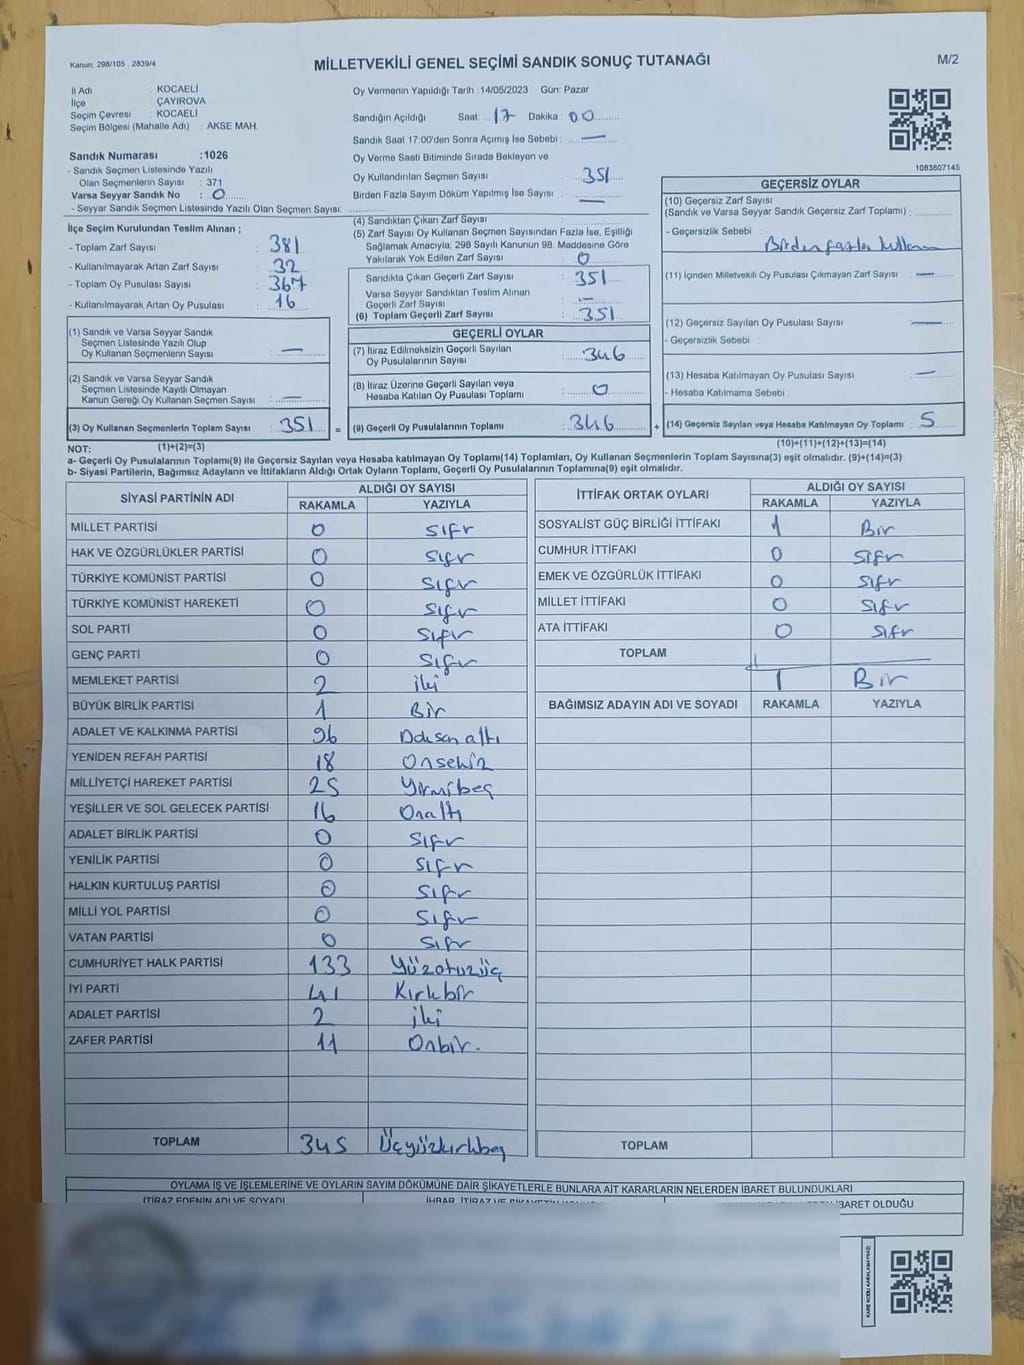 Kanun, 298/105 , 2839/4
MİLLETVEKİLİ GENEL SEÇİMİ SANDIK SONUÇ TUTANAĞI
M/2
İl Adı : KOCAELİ
İlçe : ÇAYIROVA
Seçim Çevresi : KOCAELİ
Seçim Bölgesi (Mahalle Adı) : AKSE MAH.
Sandık Numarası :1026
- Sandık Seçmen Listesinde Yazılı
Olan Seçmenlerin Sayısı : 371
Varsa Seyyar Sandık No : 0
- Seyyar Sandık Seçmen Listesinde Yazılı Olan Seçmen Sayısı:
Oy Vermenin Yapıldığı Tarih :14/05/2023 Gün: Pazar
Sandığın Açıldığı Saat: 17 Dakika: 00
Sandık Saat 17:00'den Sonra Açılmış İse Sebebi : —
Oy Verme Saati Bitiminde Sırada Bekleyen ve
Oy Kullandırılan Seçmen Sayısı : 351
Birden Fazla Sayım Döküm Yapılmış İse Sayısı : —
1083807145
İlçe Seçim Kurulundan Teslim Alınan ;
- Toplam Zarf Sayısı : 381
- Kullanılmayarak Artan Zarf Sayısı : 32
- Toplam Oy Pusulası Sayısı : 367
- Kullanılmayarak Artan Oy Pusulası : 16
(1) Sandık ve Varsa Seyyar Sandık
Seçmen Listesinde Yazılı Olup
Oy Kullanan Seçmenlerin Sayısı : —
(2) Sandık ve Varsa Seyyar Sandık
Seçmen Listesinde Kayıtlı Olmayan
Kanun Gereği Oy Kullanan Seçmen Sayısı : —
(3) Oy Kullanan Seçmenlerin Toplam Sayısı : 351 =
(4) Sandıktan Çıkan Zarf Sayısı :
(5) Zarf Sayısı Oy Kullanan Seçmen Sayısından Fazla İse, Eşitliği
Sağlamak Amacıyla; 298 Sayılı Kanunun 98. Maddesine Göre
Yakılarak Yok Edilen Zarf Sayısı : 0
Sandıkta Çıkan Geçerli Zarf Sayısı : 351
Varsa Seyyar Sandıktan Teslim Alınan
Geçerli Zarf Sayısı : —
(6) Toplam Geçerli Zarf Sayısı : 351
GEÇERLİ OYLAR
(7) İtiraz Edilmeksizin Geçerli Sayılan
Oy Pusulalarının Sayısı : 346
(8) İtiraz Üzerine Geçerli Sayılan veya
Hesaba Katılan Oy Pusulası Toplamı : 0
(9) Geçerli Oy Pusulalarının Toplamı : 346 +
GEÇERSİZ OYLAR
(10) Geçersiz Zarf Sayısı
(Sandık ve Varsa Seyyar Sandık Geçersiz Zarf Toplamı) :
- Geçersizlik Sebebi : Birden fazla kullanım
(11) İçinden Milletvekili Oy Pusulası Çıkmayan Zarf Sayısı : —
(12) Geçersiz Sayılan Oy Pusulası Sayısı : —
- Geçersizlik Sebebi :
(13) Hesaba Katılmayan Oy Pusulası Sayısı : —
- Hesaba Katılmama Sebebi :
(14) Geçersiz Sayılan veya Hesaba Katılmayan Oy Toplamı : 5
NOT: (1)+(2)=(3) (10)+(11)+(12)+(13)=(14)
a- Geçerli Oy Pusulalarının Toplamı(9) ile Geçersiz Sayılan veya Hesaba katılmayan Oy Toplamı(14) Toplamları, Oy Kullanan Seçmenlerin Toplam Sayısına(3) eşit olmalıdır. (9)+(14)=(3)
b- Siyasi Partilerin, Bağımsız Adayların ve İttifakların Aldığı Ortak Oyların Toplamı, Geçerli Oy Pusulalarının Toplamına(9) eşit olmalıdır.
SİYASİ PARTİNİN ADI ALDIĞI OY SAYISI
RAKAMLA YAZIYLA
MİLLET PARTİSİ 0 Sıfır
HAK VE ÖZGÜRLÜKLER PARTİSİ 0 Sıfır
TÜRKİYE KOMÜNİST PARTİSİ 0 Sıfır
TÜRKİYE KOMÜNİST HAREKETİ 0 Sıfır
SOL PARTİ 0 Sıfır
GENÇ PARTİ 0 Sıfır
MEMLEKET PARTİSİ 2 iki
BÜYÜK BİRLİK PARTİSİ 1 Bir
ADALET VE KALKINMA PARTİSİ 96 Doksan altı
YENİDEN REFAH PARTİSİ 18 Onsekiz
MİLLİYETÇİ HAREKET PARTİSİ 25 Yirmibeş
YEŞİLLER VE SOL GELECEK PARTİSİ 16 Onaltı
ADALET BİRLİK PARTİSİ 0 Sıfır
YENİLİK PARTİSİ 0 Sıfır
HALKIN KURTULUŞ PARTİSİ 0 Sıfır
MİLLİ YOL PARTİSİ 0 Sıfır
VATAN PARTİSİ 0 Sıfır
CUMHURİYET HALK PARTİSİ 133 Yüzotuzüç
İYİ PARTİ 41 Kırkbir
ADALET PARTİSİ 2 iki
ZAFER PARTİSİ 11 Onbir.
TOPLAM 345 Üçyüzkırkbeş
İTTİFAK ORTAK OYLARI ALDIĞI OY SAYISI
RAKAMLA YAZIYLA
SOSYALİST GÜÇ BİRLİĞİ İTTİFAKI 1 Bir
CUMHUR İTTİFAKI 0 Sıfır
EMEK VE ÖZGÜRLÜK İTTİFAKI 0 Sıfır
MİLLET İTTİFAKI 0 Sıfır
ATA İTTİFAKI 0 Sıfır
TOPLAM
1 Bir
BAĞIMSIZ ADAYIN ADI VE SOYADI RAKAMLA YAZIYLA
TOPLAM
OYLAMA İŞ VE İŞLEMLERİNE VE OYLARIN SAYIM DÖKÜMÜNE DAİR ŞİKAYETLERLE BUNLARA AİT KARARLARIN NELERDEN İBARET BULUNDUKLARI
İTİRAZ EDENİN ADI VE SOYADI
İHBAR, İTİRAZ VE
İBARET OLDUĞU